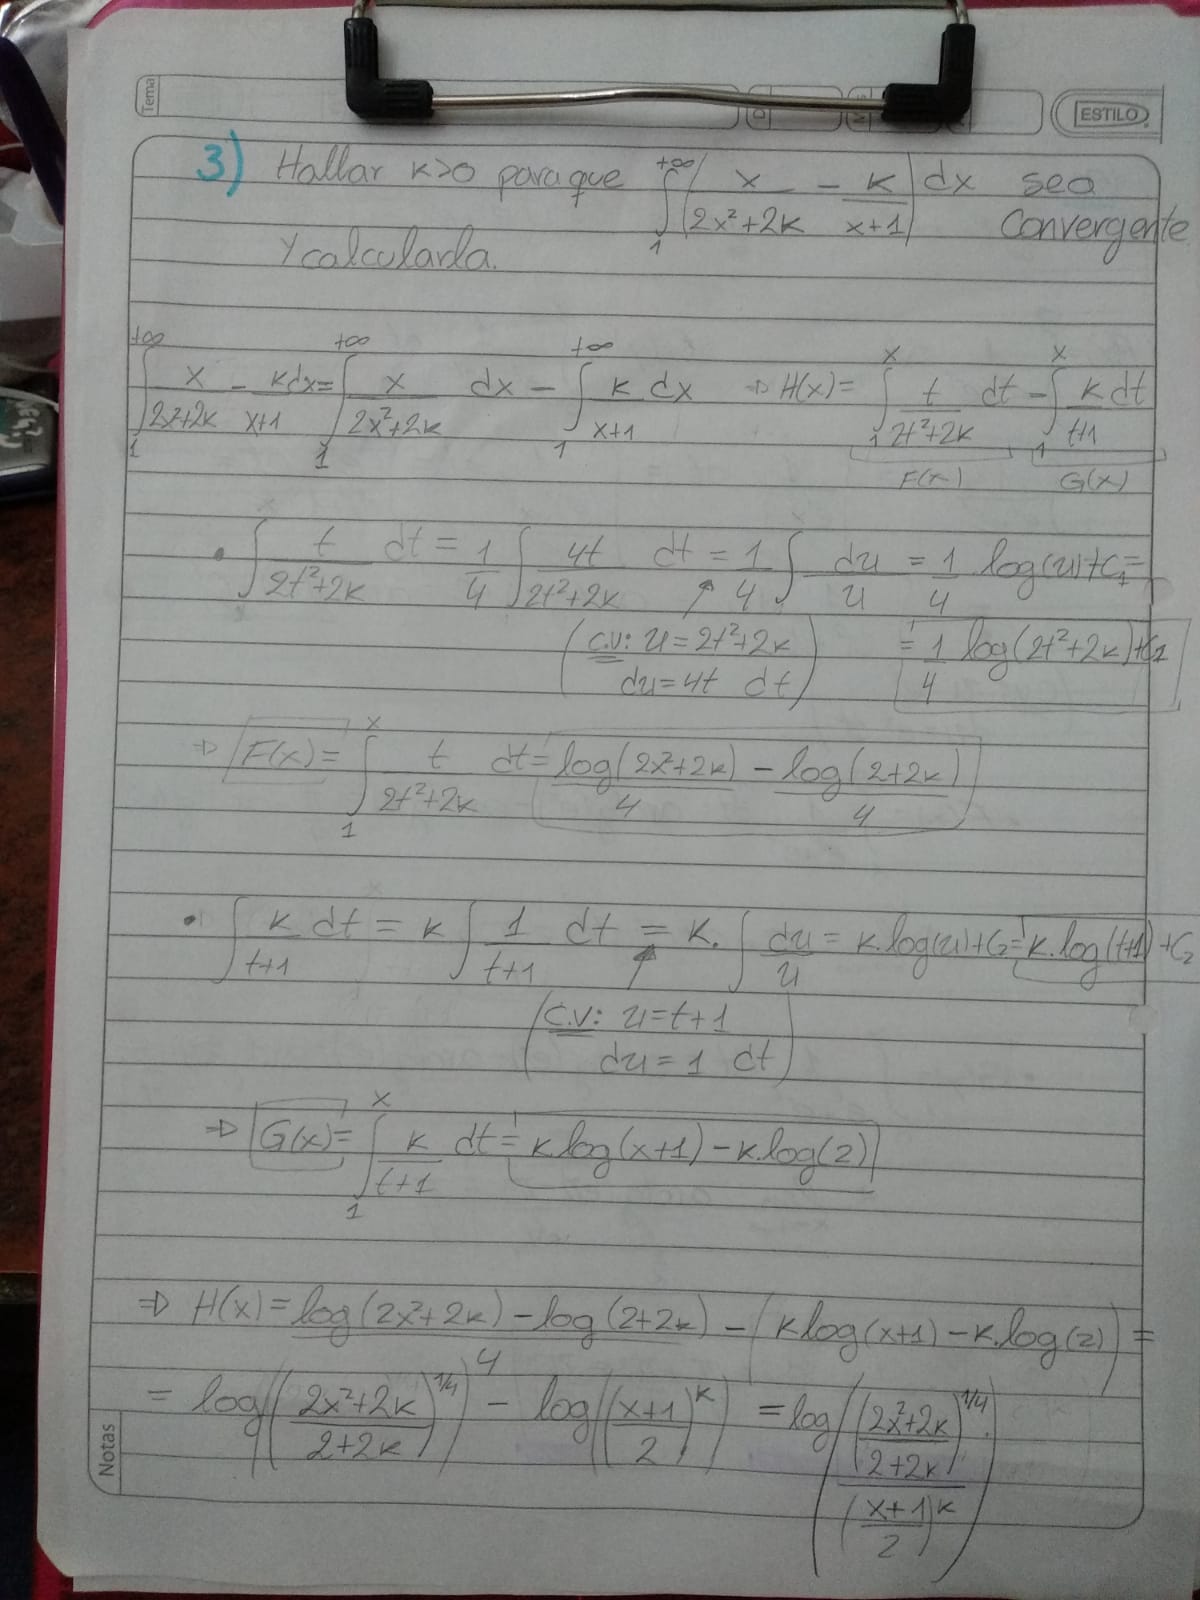 Tema
ESTILO
3) Hallar k>0 para que ∫₁^{+∞} (x/(2x²+2k) - k/(x+1)) dx sea
convergente
y calcularla.
∫₁^{+∞} x/(2x²+2k) - k/(x+1) dx = ∫₁^{+∞} x/(2x²+2k) dx - ∫₁^{+∞} k/(x+1) dx ⇒ H(x) = ∫₁^x t/(2t²+2k) dt - ∫₁^x k/(t+1) dt
F(x) G(x)
• ∫^x t/(2t²+2k) dt = 1/4 ∫ 4t/(2t²+2k) dt = 1/4 ∫ du/u = 1/4 log(u)+C₁ =
(C.V: u=2t²+2k = 1/4 log(2t²+2k)+C1
du=4t dt)
⇒ F(x) = ∫₁^x t/(2t²+2k) dt = log(2x²+2k)/4 - log(2+2k)/4
• ∫ k/(t+1) dt = k ∫ 1/(t+1) dt = k. ∫ du/u = k.log(u)+C₂ = k.log(t+1)+C₂
(C.V: u=t+1
du=1 dt)
⇒ G(x) = ∫₁^x k/(t+1) dt = k.log(x+1) - k.log(2)
⇒ H(x) = (log(2x²+2k) - log(2+2k))/4 - (k log(x+1) - k.log(2)) =
= log(((2x²+2k)/(2+2k))^{1/4}) - log(((x+1)/2)^k) = log(((2x²+2k)/(2+2k))^{1/4} / ((x+1)/2)^k)
Notas